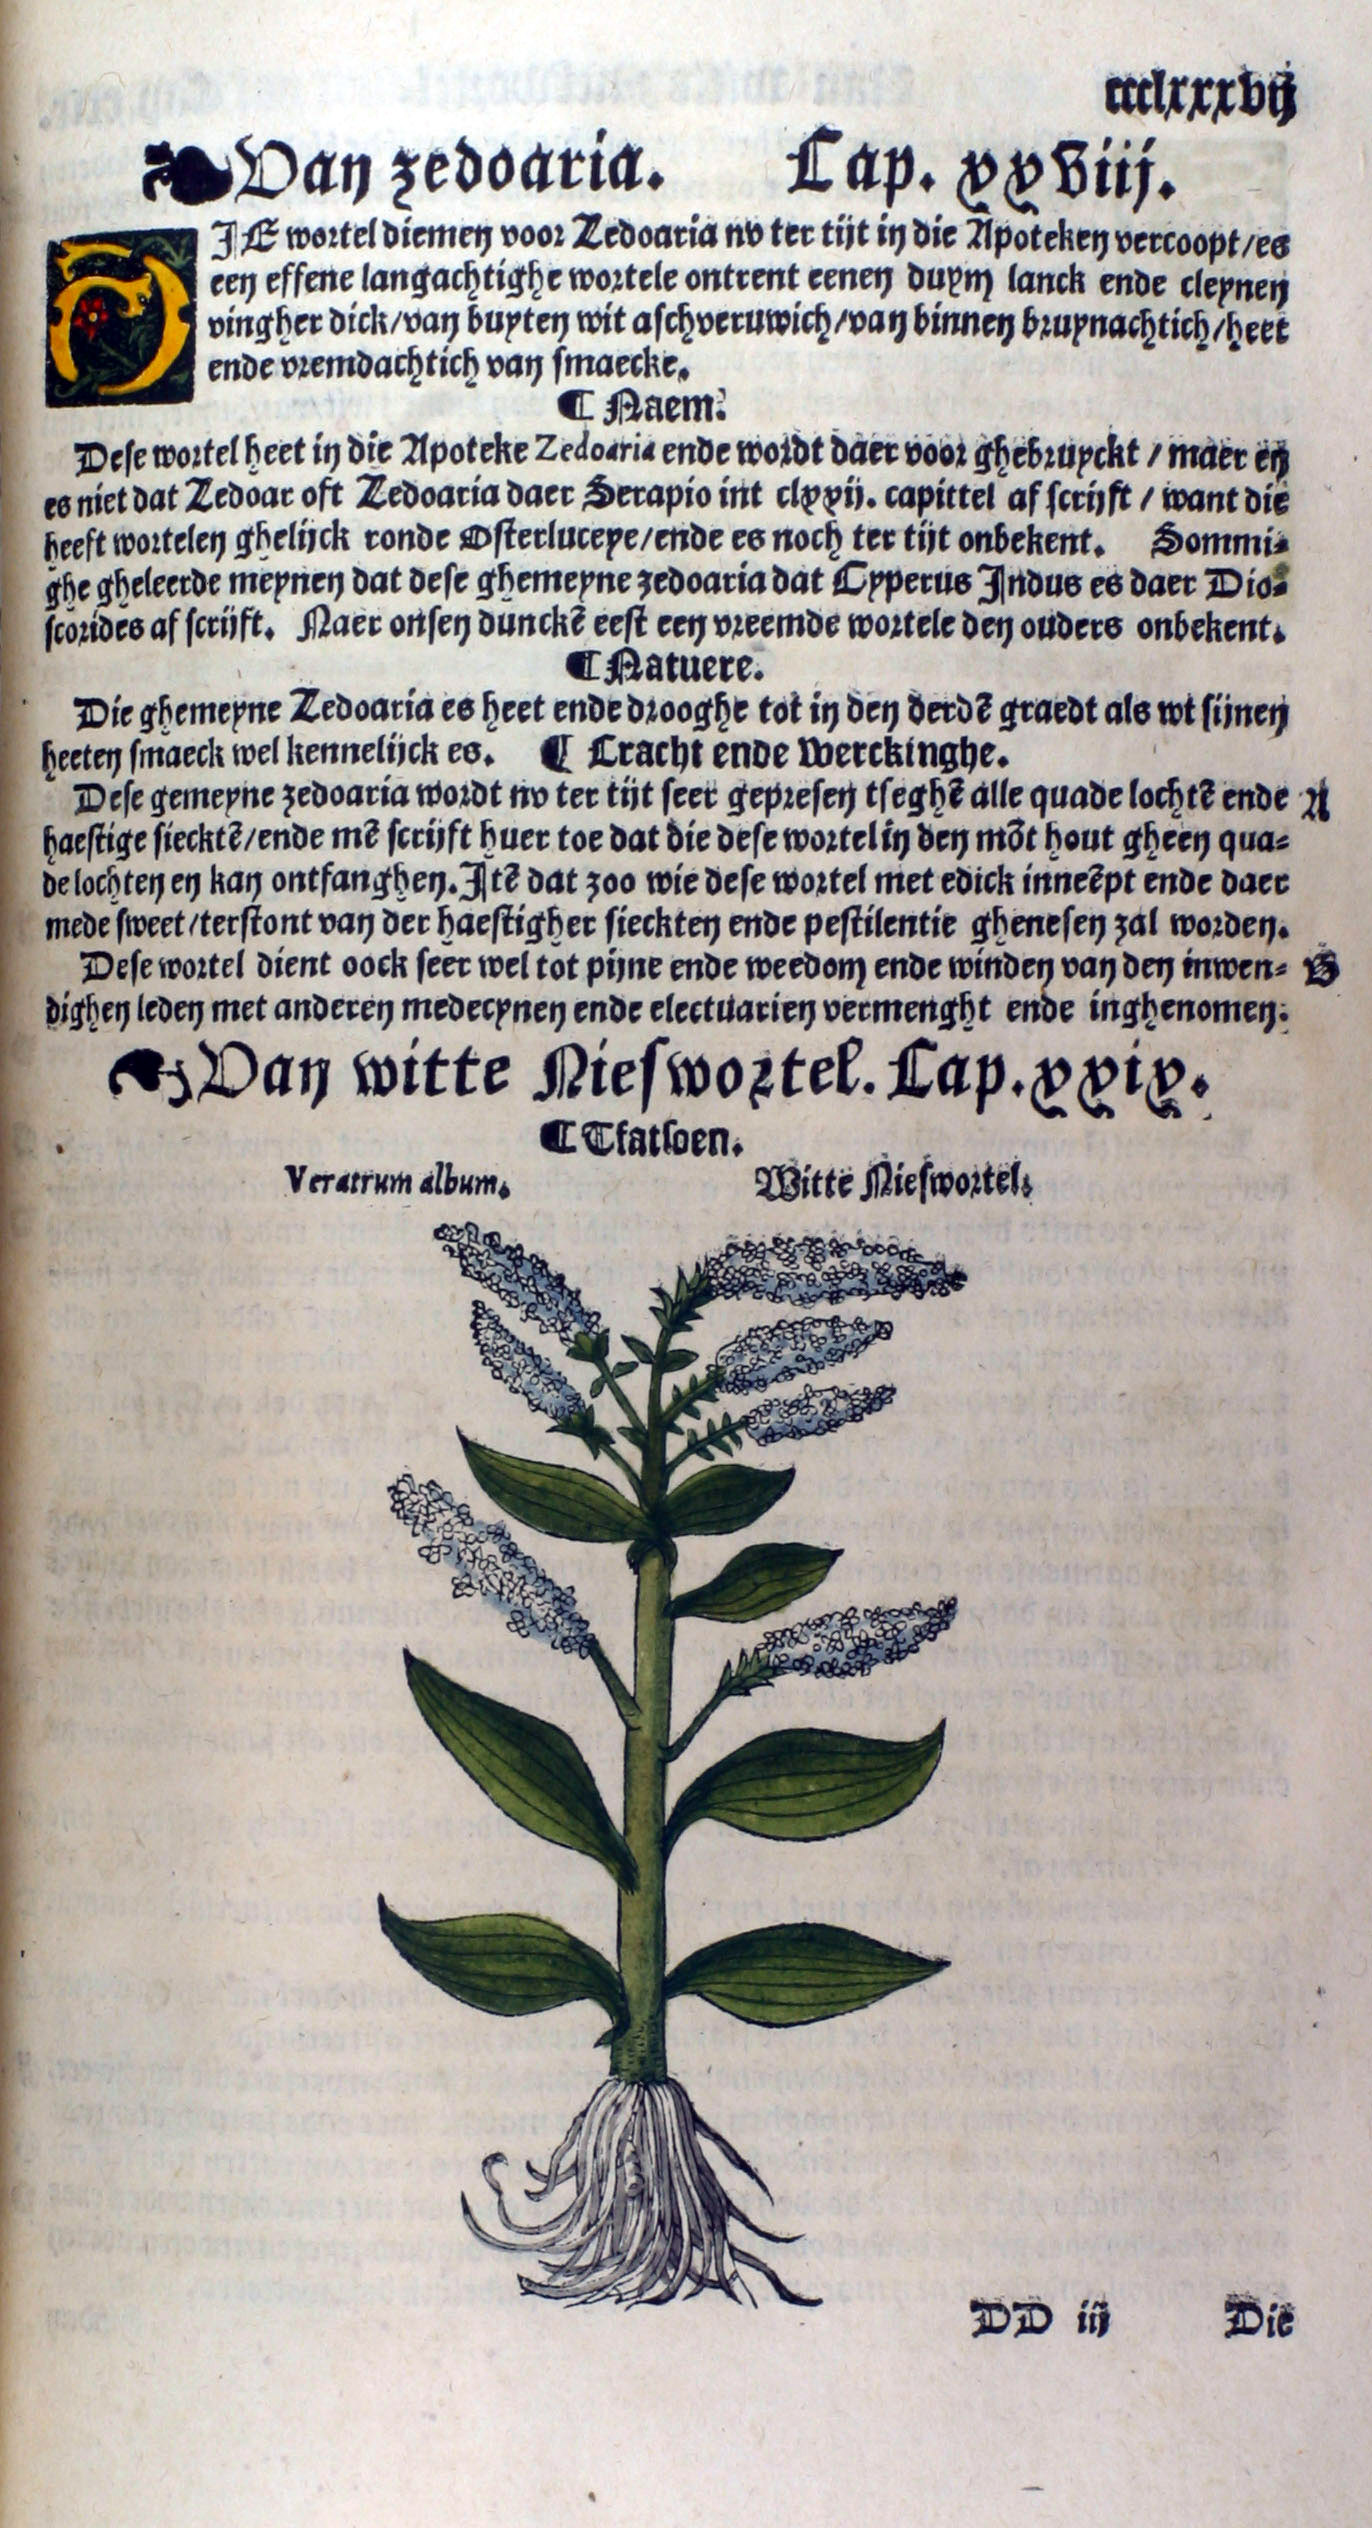 ccclxxxvij
Van zedoaria. Cap. xxviij.
DIE wortel diemen voor Zedoaria nv ter tijt in die Apoteken vercoopt/es
een effene langachtighe wortele ontrent eenen duym lanck ende cleynen
vingher dick/van buyten wit aschveruwich/van binnen bruynachtich/heet
ende vremdachtich van smaecke.
¶ Naem.
Dese wortel heet in die Apoteke Zedoaria ende wordt daer voor ghebruyckt / maer en
es niet dat Zedoar oft Zedoaria daer Serapio int clxxij. capittel af scrijft / want die
heeft wortelen ghelijck ronde Osterluceye/ende es noch ter tijt onbekent. Sommi-
ghe gheleerde meynen dat dese ghemeyne zedoaria dat Cyperus Indus es daer Dio-
scorides af scrijft. Naer onsen dunckē eest een vreemde wortele den ouders onbekent.
¶ Natuere.
Die ghemeyne Zedoaria es heet ende drooghe tot in den derdē graedt als wt sijnen
heeten smaeck wel kennelijck es. ¶ Cracht ende Werckinghe.
Dese gemeyne zedoaria wordt nv ter tijt seer gepresen tseghē alle quade lochtē ende A
haestige siecktē/ende mē scrijft huer toe dat die dese wortel in den mōt hout gheen qua-
de lochten en kan ontfanghen. Itē dat zoo wie dese wortel met edick inneēpt ende daer
mede sweet/terstont van der haestigher sieckten ende pestilentie ghenesen zal worden.
Dese wortel dient oock seer wel tot pijne ende weedom ende winden van den inwen- B
dighen leden met anderen medecynen ende electuarien vermenght ende inghenomen.
Van witte Nieswortel. Cap. xxix.
¶ Tfatsoen.
Veratrum album. Witte Nieswortel.
DD iij Die